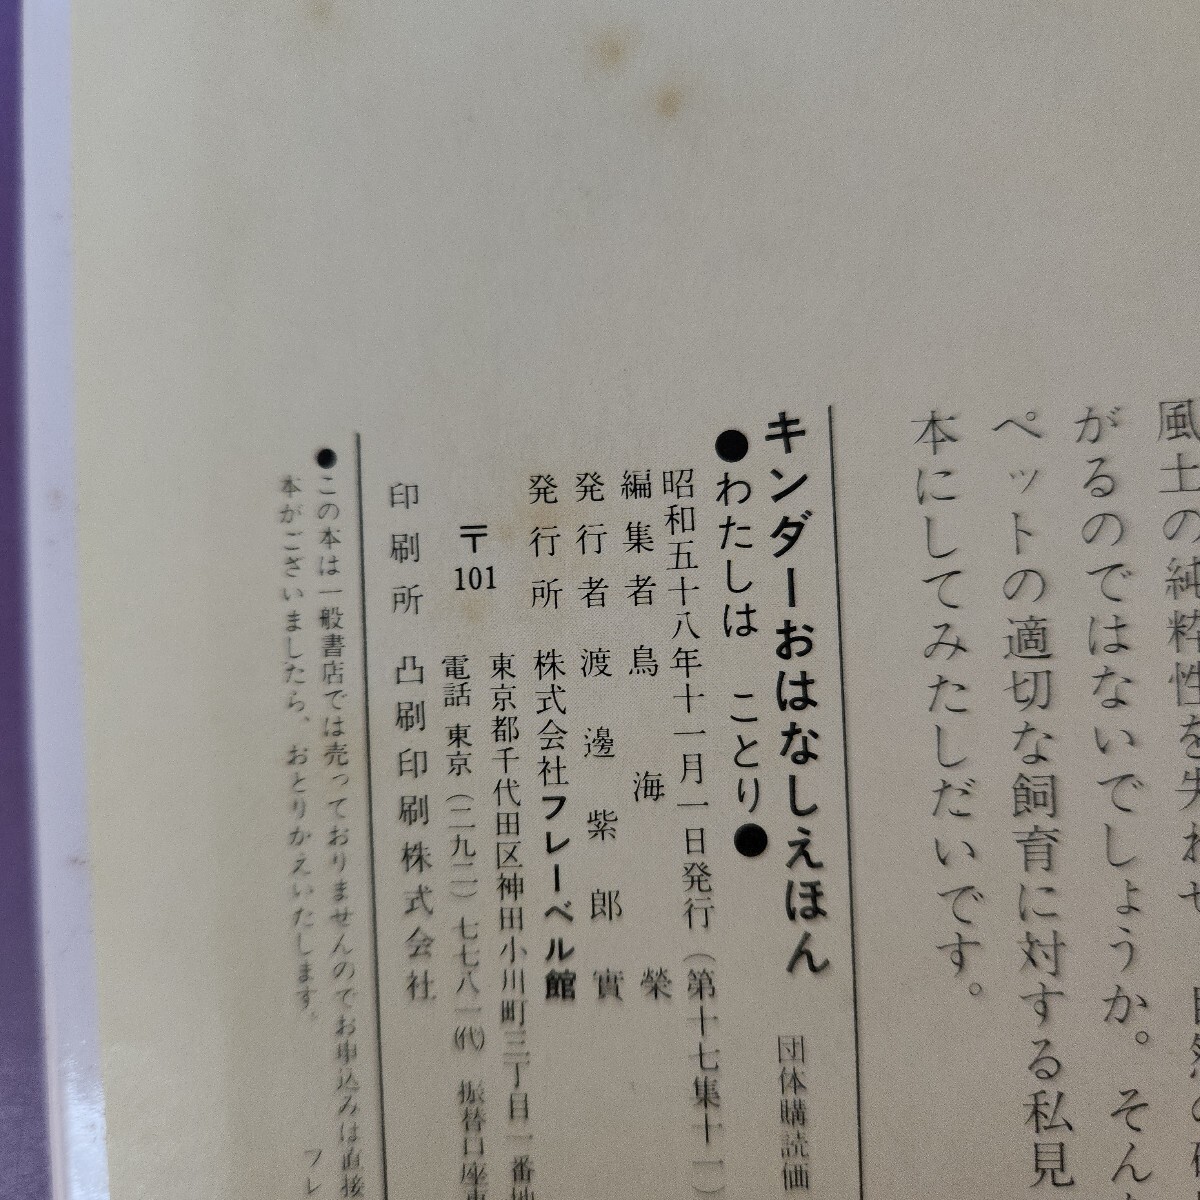 風土の純粋性を失わせ、自然の
がるのではないでしょうか。そん
ペットの適切な飼育に対する私見
本にしてみたしだいです。
キンダーおはなしえほん 団体購読価
●わたしは ことり●
昭和五十八年十一月一日発行（第十七集十一
編集者 鳥海 榮
発行者 渡邊紫郎實
発行所 株式会社フレーベル館
〒101 東京都千代田区神田小川町三丁目一番地
電話 東京（二九二）七七八一（代） 振替口座東
印刷所 凸版印刷株式会社
●この本は一般書店では売っておりませんのでお申込みは直接
本がございましたら、おとりかえいたします。 フレ